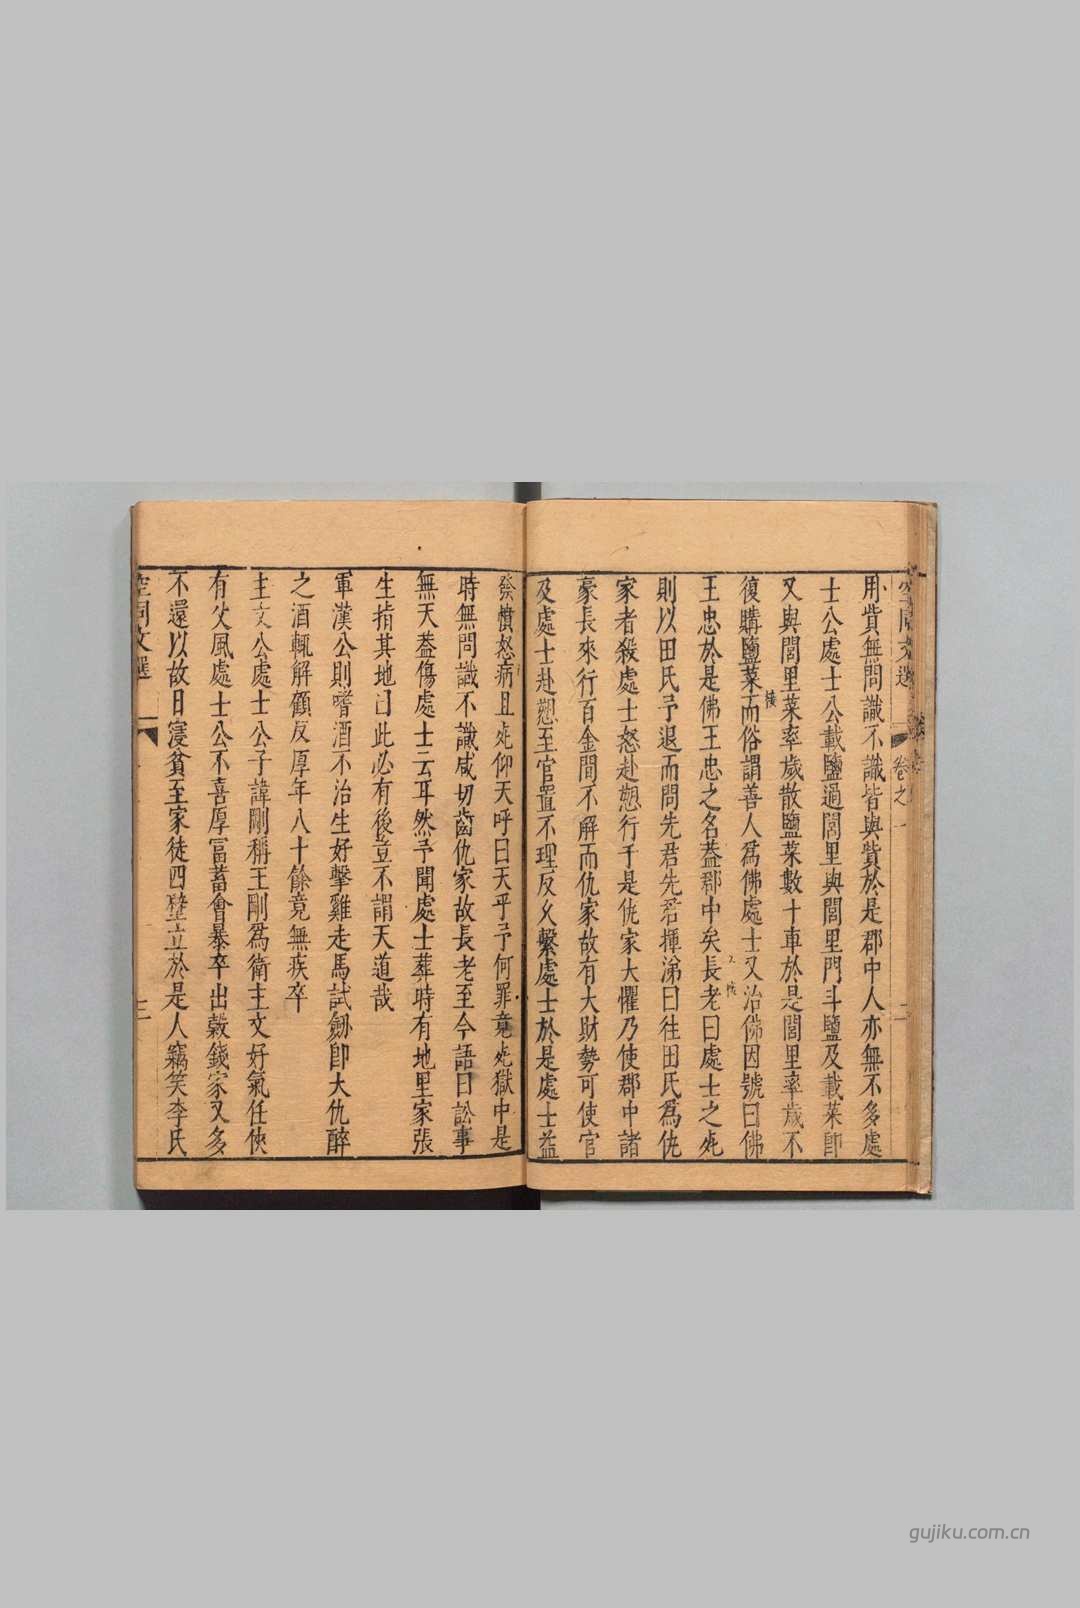 空同文選 卷之一 二
用貲無問識不識皆與貲於是郡中人亦無不多處
士公處士公載鹽過閭里與閭里門斗鹽及載菜即
又與閭里菜率歲散鹽菜數十車於是閭里率歲不
復購鹽菜而俗謂善人爲佛處士又治佛因號曰佛
王忠於是佛王忠之名葢郡中矣長老曰處士之死
則以田氏予退而問先君先君揮涕曰往田氏爲仇
家者殺處士怒赴愬行千是仇家大懼乃使郡中諸
豪長來行百金間不解而仇家故有大財勢可使官
及處士赴愬至官置不理反乆繫處士於是處士益
發憤怒病且死仰天呼曰天乎予何罪竟死獄中是
時無問識不識咸切齒仇家故長老至今語曰訟事
無天葢傷處士云耳然予聞處士葬時有地里家張
生指其地曰此必有後豈不謂天道哉
軍漢公則嗜酒不治生好擊雞走馬試劔即大仇醉
之酒輒解顧反厚年八十餘竟無疾卒
主文公處士公子諱剛稱王剛爲衛主文好氣任俠
有父風處士公不喜厚冨蓄會暴卒出穀錢家又多
不還以故日寖貧至家徒四壁立於是人竊笑李氏
空同文選 三
gujiku.com.cn